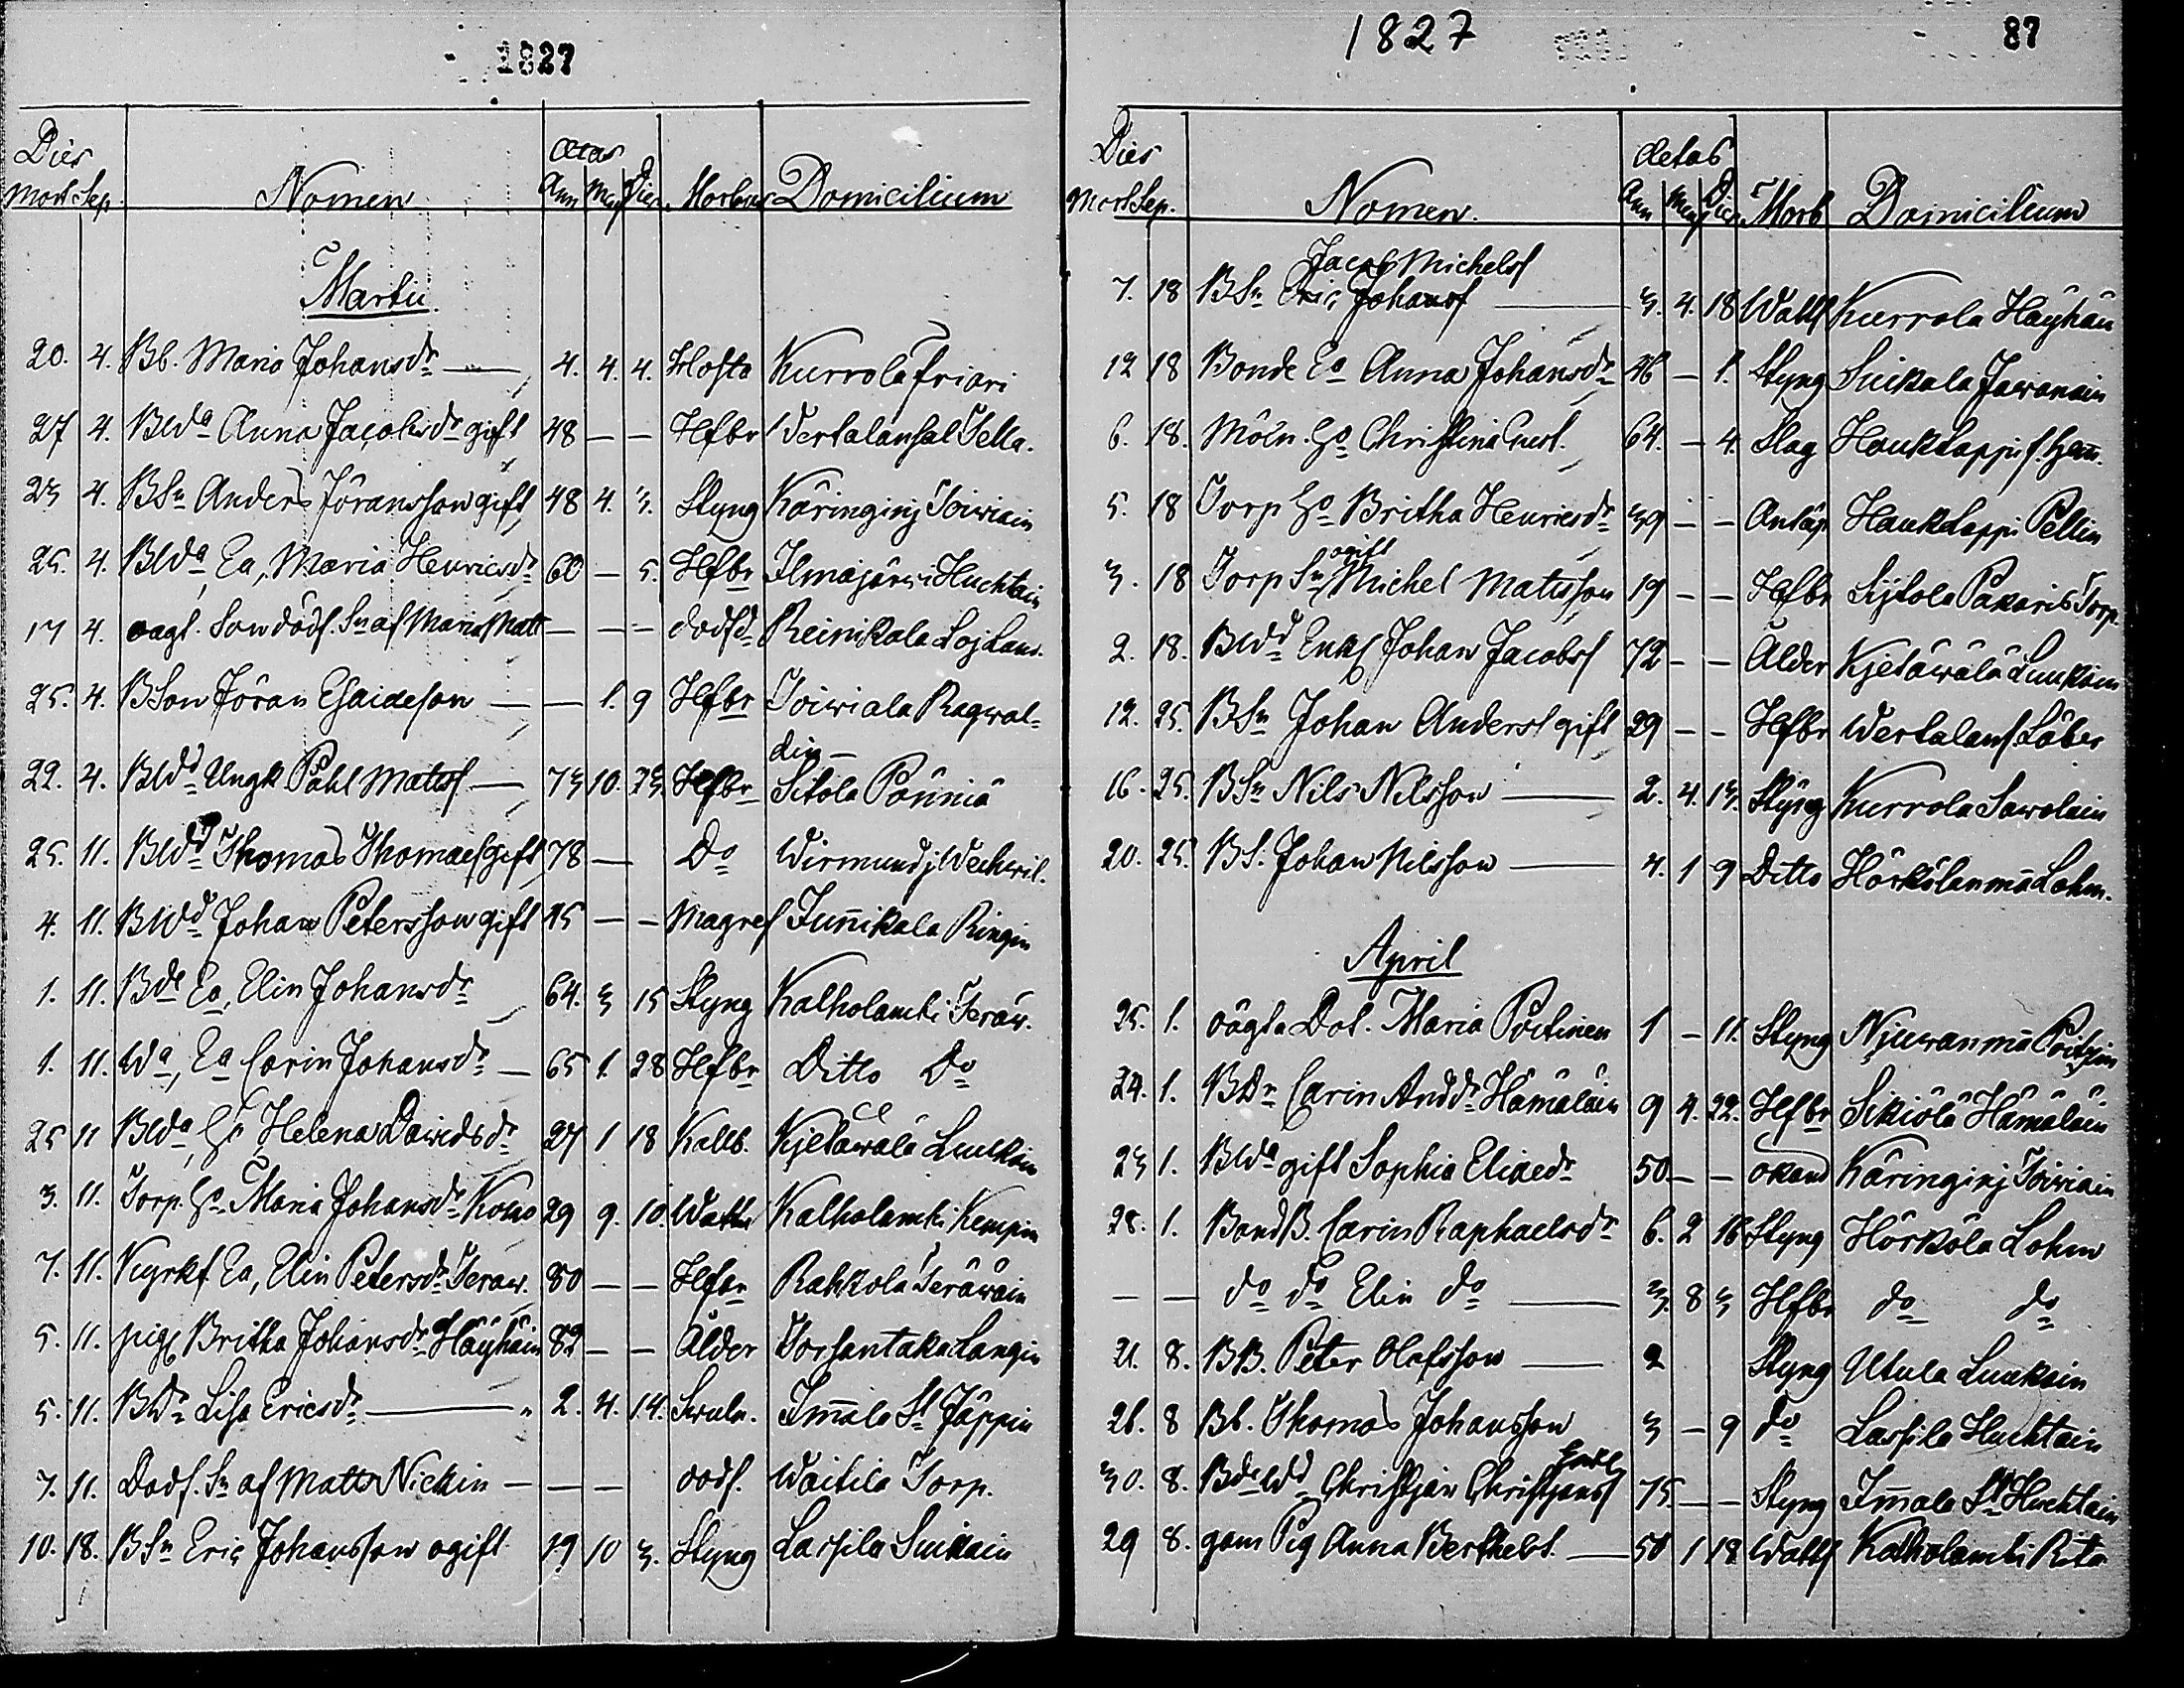 1827
Dies Aetas
Mort Sep. Nomen Ann Men Dies Morbus Domicilium
Martii
20. 4. Bb. Maria Johansdr — 4. 4. 4. Hosta Kurrola Friari
27 4. BWda Anna Jacobsdr gift 48 — — Hfbr Wertalansal Tella.
23 4. BSn Anders Jöransson gift 48 4. 3. Styng Käringinj Toiwiain
25. 4. BWda, Ea, Maria Henricsdr 60 — 5. Hfbr Ilmajärwi Huchtain
17 4. oagt. Son dödf. Sn af Maria Matt — — — dödfd Reinikala Loj Lans.
25. 4. BSon Jöran Esaiæson — — 1. 9 Hfbr Toiwiala Ragwal=
din —
22. 4. BWdd Ungk Påhl Matss — 73 10. 23. Hfbr Sitola Pönniä
25. 11. BWdd Thomas Thomæs gift 78 — Do Wirmundj Wechwil.
4. 11. BWdd Johan Petersson gift 45 — — Magref Junnikala Ringin
1. 11. Bde Ea, Elin Johansdr 64. 3 15 Styng Kalholambi Teräw.
1. 11. Wa, Ea Carin Johansdr — 65 1. 28 Hfbr Ditto Do
25 11 BWda, Ho Helena Dawidsdr 27 1 18 Kallb. Kjetäwälä Luukain
3. 11. Torp. Ho Maria Johansdr Komo 29 9. 10. Watts Kalholambi Kempin
7. 11. Kyrkf Ea, Elin Petersdr Teraw. 80 — — Hfbr Rahkola Teräwäin
5. 11. pig Britha Johansdr Häyhäin 82 — — Ålder Torsantaka Langin
5. 11. BDr Lisa Ericsdr — 2. 4. 14. Swuln. Immala St Jäppin
7. 11. Dodf. Sn af Matts Nickin — — — dodf. Waitila Torp.
10. 18. BSn Eric Johansson ogift 19 10 3. Styng Lassila Suikain
1827 87
Dies Aetas
Mort Sep. Nomen. Ann Men Dies Morb Domicilium
Jacob Michelss
7. 18 BSn Eric Johanss — 3. 4. 18 Watts Kurrola Häyhäin
12 18 Bonde Ea Anna Johansdr 46 — 1. Styng Suikala Jawanain
6. 18. Möln. Ho Christina Gust. 64. — 4. Slag Hauklappi s. Hem.
5. 18 Torp Ho Britha Henricsdr 39 — — Anläp Hauklappi Pellin
ogift
3. 18 Torp Sn Michel Matsson 19 — — Hfbr Sijtola Pakaris Torp.
2. 18. BWdd Enkl Johan Jacobss 72 — — Ålder Kjetäwälä Luukain
12. 25. BSn Johan Anderss gift 29 — — Hfbr Wertalans Löber
16. 25. BSn Nils Nilsson — 2. 4. 13. Styng Kurrola Sawolain
20. 25. BS. Johan Nilsson — 4. 1 9 Ditto Hörkölänmä Lohm.
April
25. 1. oägta Dot. Maria Poitinen 1 — 11. Styng Njuwanmä Poitzin
24. 1. BDr Carin Anddr Hämäläin 9 4. 22. Hfbr Sikiölä Hämäläin
23 1. BWda gift Sophia Eliædr 50 — — okand Käringinj Toiwiain
28. 1. Bond B. Carin Raphaelsdr 6. 2 16 Styng Hörkölä Lohm
— — do do Elin do — 3. 8 3 Hfbr do do
21. 8. BB. Peter Olofsson — 2 Styng Utula Luukain
26. 8 Bb. Thomas Johansson 3 — 9 do Lassila Huchtain
Enkl
30. 8. Bde Wdd Christjan Christjanss 75. — — Styng Immala St Huchtain
29 8. gam Pig Anna Berthelsd. — 50 1 18 Watts Kalholambi Rita